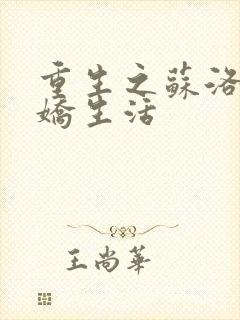 重生之蘇洛
嬌生活
王尚華